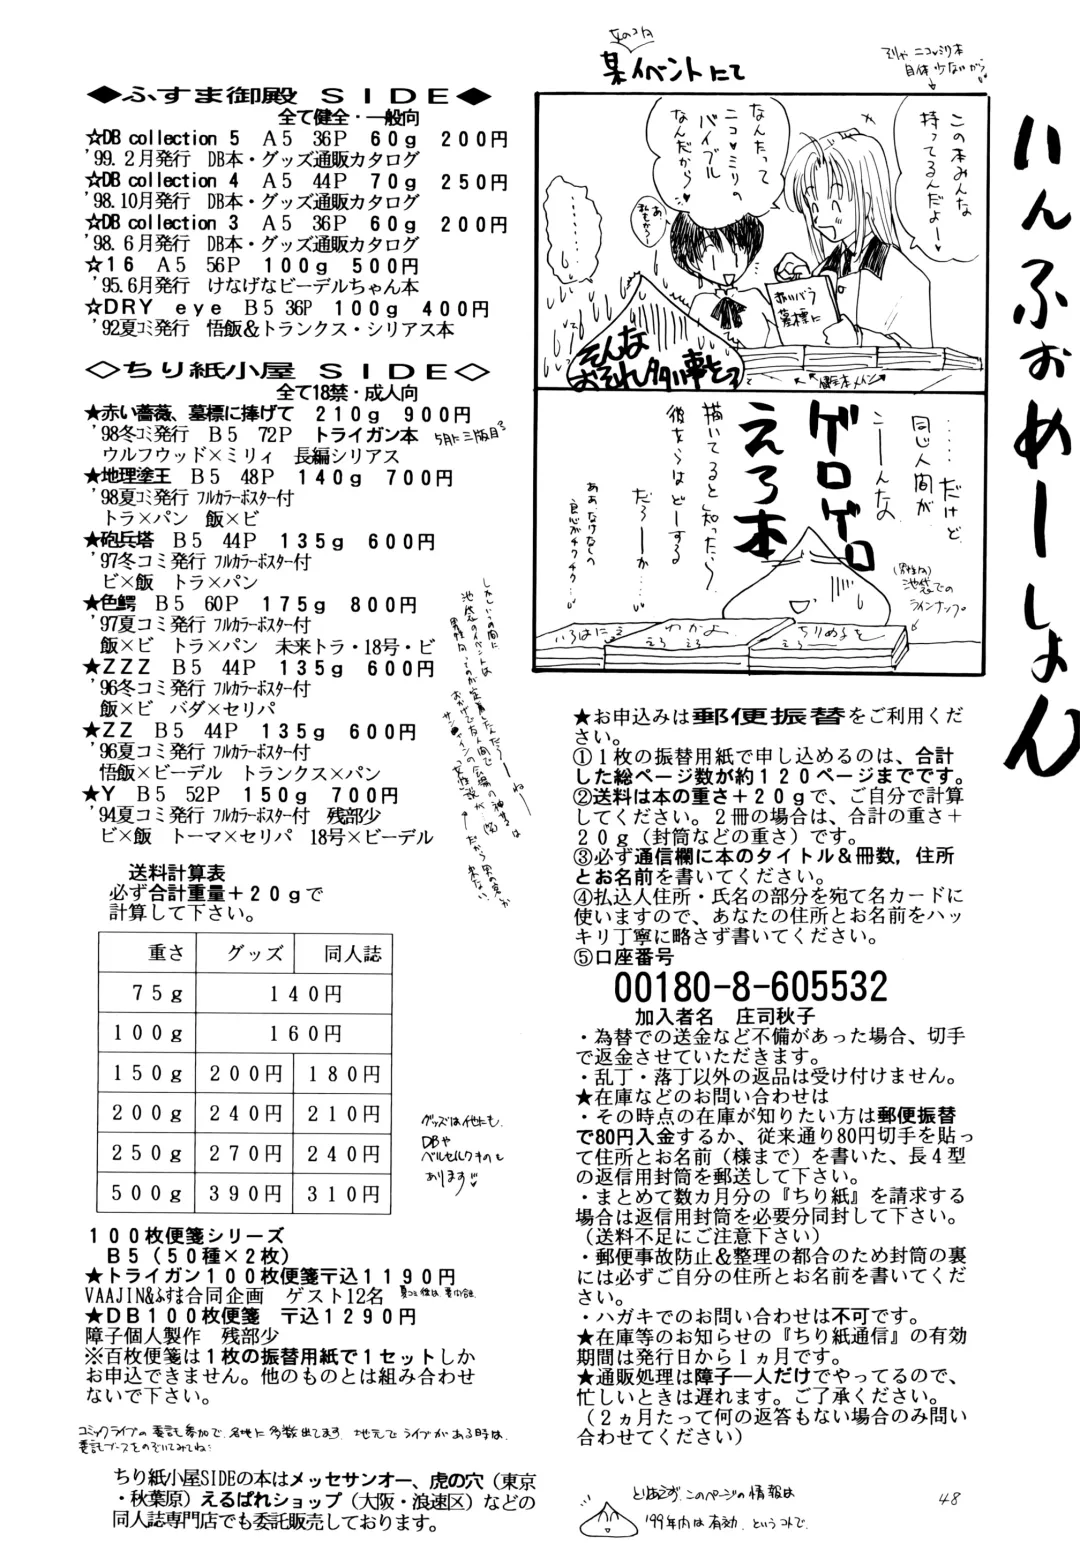 いんふぉめーしょん
女のコ向
某イベントにて
そりゃニコ♥ミリ本
自体少ないから
この本みんな
持ってるんだよー
なんたって
ニコ♥ミリの
バイブル
なんだから♥
あ、
私もかう!
‥‥‥
赤いバラ
墓標に
そんな
おそれ多い事をっ
健全本メイン
‥‥‥だけど
同じ人間が
こーーんな
ゲロゲロ
えろ本
描いてると知ったら
彼女らはどーする
だろーか‥‥
ああ、なけなしの
良心がチクチク‥
(男性向)
池袋での
ラインナップ
いろはにえろ
わかよ
えろえろ
ちりめ子を
えろえろ
◆ふすま御殿 SIDE◆
全て健全・一般向
☆DB collection 5 A5 36P 60g 200円
'99.2月発行 DB本・グッズ通販カタログ
☆DB collection 4 A5 44P 70g 250円
'98.10月発行 DB本・グッズ通販カタログ
☆DB collection 3 A5 36P 60g 200円
'98.6月発行 DB本・グッズ通販カタログ
☆16 A5 56P 100g 500円
'95.6月発行 けなげなビーデルちゃん本
☆DRY eye B5 36P 100g 400円
'92夏コミ発行 悟飯&トランクス・シリアス本
◇ちり紙小屋 SIDE◇
全て18禁・成人向
★赤い薔薇、墓標に捧げて 210g 900円
'98冬コミ発行 B5 72P トライガン本 5月に三版目
ウルフウッド×ミリィ 長編シリアス
★地理塗王 B5 48P 140g 700円
'98夏コミ発行 フルカラーポスター付
トラ×パン 飯×ビ
★砲兵塔 B5 44P 135g 600円
'97冬コミ発行 フルカラーポスター付
ビ×飯 トラ×パン
★色鰐 B5 60P 175g 800円
'97夏コミ発行 フルカラーポスター付
飯×ビ トラ×パン 未来トラ・18号・ビ
★ZZZ B5 44P 135g 600円
'96冬コミ発行 フルカラーポスター付
飯×ビ バダ×セリパ
★ZZ B5 44P 135g 600円
'96夏コミ発行 フルカラーポスター付
悟飯×ビーデル トランクス×パン
★Y B5 52P 150g 700円
'94夏コミ発行 フルカラーポスター付 残部少
ビ×飯 トーマ×セリパ 18号×ビーデル
送料計算表
必ず合計重量+20gで
計算して下さい。
重さ グッズ 同人誌
75g 140円
100g 160円
150g 200円 180円
200g 240円 210円
250g 270円 240円
500g 390円 310円
グッズは他にも、
DBや
ベルセルクものも
あります♥
100枚便箋シリーズ
B5(50種×2枚)
★トライガン100枚便箋〒込1190円
VAAJIN&ふすま合同企画 ゲスト12名
★DB100枚便箋 〒込1290円
障子個人製作 残部少
※百枚便箋は1枚の振替用紙で1セットしか
お申込できません。他のものとは組み合わせ
ないで下さい。
コミックライブの委託参加で、各地に多数出てます、地元でライブがある時は、
委託ブースをのぞいてみてね
ちり紙小屋SIDEの本はメッセサンオー、虎の穴(東京
・秋葉原)えるぱれショップ(大阪・浪速区)などの
同人誌専門店でも委託販売しております。
★お申込みは郵便振替をご利用くだ
さい。
①1枚の振替用紙で申し込めるのは、合計
した総ページ数が約120ページまでです。
②送料は本の重さ+20gで、ご自分で計算
してください。2冊の場合は、合計の重さ+
20g(封筒などの重さ)です。
③必ず通信欄に本のタイトル&冊数,住所
とお名前を書いてください。
④払込人住所・氏名の部分を宛て名カードに
使いますので、あなたの住所とお名前をハッ
キリ丁寧に略さず書いてください。
⑤口座番号
00180-8-605532
加入者名 庄司秋子
・為替での送金など不備があった場合、切手
で返金させていただきます。
・乱丁・落丁以外の返品は受け付けません。
★在庫などのお問い合わせは
・その時点の在庫が知りたい方は郵便振替
で80円入金するか、従来通り80円切手を貼っ
て住所とお名前(様まで)を書いた、長4型
の返信用封筒を郵送して下さい。
・まとめて数カ月分の『ちり紙』を請求する
場合は返信用封筒を必要分同封して下さい。
(送料不足にご注意下さい)
・郵便事故防止&整理の都合のため封筒の裏
には必ずご自分の住所とお名前を書いてくだ
さい。
・ハガキでのお問い合わせは不可です。
★在庫等のお知らせの『ちり紙通信』の有効
期間は発行日から1ヵ月です。
★通販処理は障子一人だけでやってるので、
忙しいときは遅れます。ご了承ください。
(2ヵ月たって何の返答もない場合のみ問い
合わせてください)
とりあえず、このページの情報は
'99年内は有効、というコトで、
48